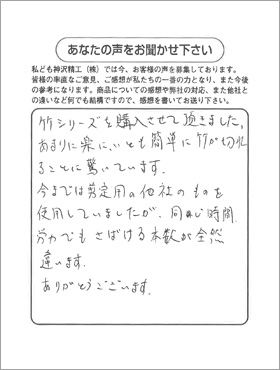 あなたの声をお聞かせ下さい
私ども神沢精工(株)では今、お客様の声を募集しております。
皆様の率直なご意見、ご感想が私たちの一番の力となり、また今後
の参考になります。商品についての感想や弊社の対応、また他社と
の違いなど何でも結構ですので、感想を書いてお送り下さい。
竹シリーズを購入させて頂きました。
あまりに楽に、いとも簡単に竹が切れ
ることに驚いています。
今までは剪定用の他社のものを
使用していましたが、同じ時間
労力でもさばける本数が全然
違います。
ありがとうございます。